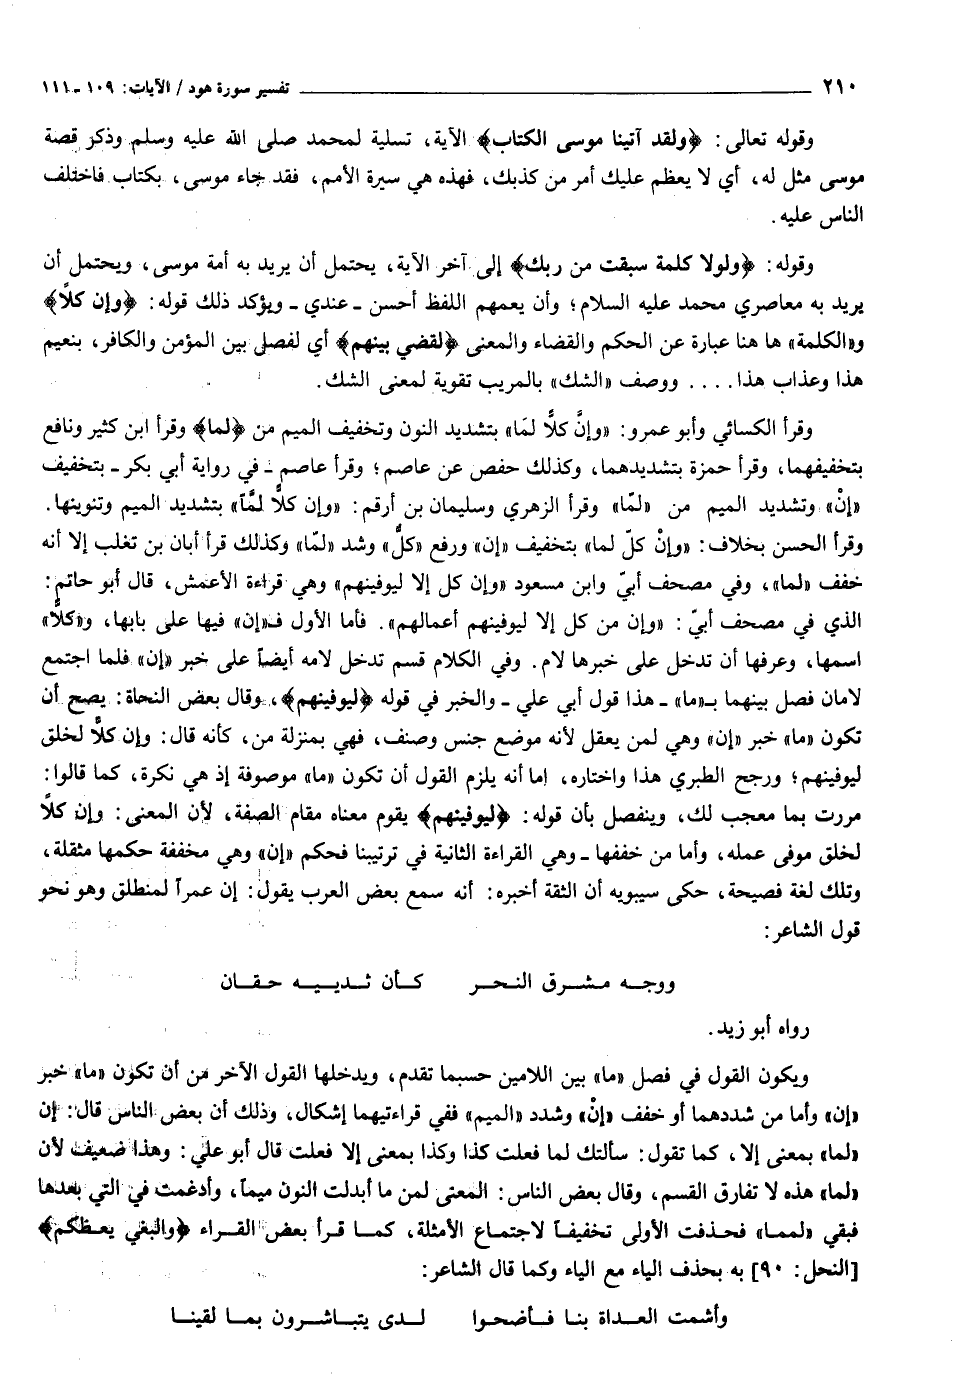 ٢١٠ ــــــــــــــــــــــــــــــــــــــــ تفسير سورة هود / الآيات: ١٠٩ ـ ١١١
وقوله تعالى: ﴿ولقد آتينا موسى الكتاب﴾ الآية، تسلية لمحمد صلى الله عليه وسلم وذكر قصة
موسى مثل له، أي لا يعظم عليك أمر من كذبك، فهذه هي سيرة الأمم، فقد جاء موسى، بكتاب فاختلف
الناس عليه.
وقوله: ﴿ولولا كلمة سبقت من ربك﴾ إلى آخر الآية، يحتمل أن يريد به أمة موسى، ويحتمل أن
يريد به معاصري محمد عليه السلام؛ وأن يعمهم اللفظ أحسن ـ عندي ـ ويؤكد ذلك قوله: ﴿وإن كلاًّ﴾
و«الكلمة» ها هنا عبارة عن الحكم والقضاء والمعنى ﴿لقضي بينهم﴾ أي لفصل بين المؤمن والكافر، بنعيم
هذا وعذاب هذا.... ووصف «الشك» بالمريب تقوية لمعنى الشك.
وقرأ الكسائي وأبو عمرو: «وإنَّ كلاًّ لمَا» بتشديد النون وتخفيف الميم من ﴿لما﴾ وقرأ ابن كثير ونافع
بتخفيفهما، وقرأ حمزة بتشديدهما، وكذلك حفص عن عاصم؛ وقرأ عاصم ـ في رواية أبي بكر ـ بتخفيف
«إنْ» وتشديد الميم من «لمّا» وقرأ الزهري وسليمان بن أرقم: «وإن كلاًّ لمَّاً» بتشديد الميم وتنوينها.
وقرأ الحسن بخلاف: «وإنْ كلّ لما» بتخفيف «إن» ورفع «كلُّ» وشد «لمّا» وكذلك قرأ أبان بن تغلب إلا أنه
خفف «لما»، وفي مصحف أبيّ وابن مسعود «وإن كل إلا ليوفينهم» وهي قراءة الأعمش، قال أبو حاتم:
الذي في مصحف أبيّ: «وإن من كل إلا ليوفينهم أعمالهم». فأما الأول فـ«إن» فيها على بابها، و«كلاًّ»
اسمها، وعرفها أن تدخل على خبرها لام. وفي الكلام قسم تدخل لامه أيضاً على خبر «إن» فلما اجتمع
لامان فصل بينهما بـ«ما» ـ هذا قول أبي علي ـ والخبر في قوله ﴿ليوفينهم﴾، وقال بعض النحاة: يصح أن
تكون «ما» خبر «إن» وهي لمن يعقل لأنه موضع جنس وصنف، فهي بمنزلة من، كأنه قال: وإن كلاًّ لخلق
ليوفينهم؛ ورجح الطبري هذا واختاره، إما أنه يلزم القول أن تكون «ما» موصوفة إذ هي نكرة، كما قالوا:
مررت بما معجب لك، وينفصل بأن قوله: ﴿ليوفينهم﴾ يقوم معناه مقام الصفة، لأن المعنى: وإن كلاًّ
لخلق موفى عمله، وأما من خففها ـ وهي القراءة الثانية في ترتيبنا فحكم «إن» وهي مخففة حكمها مثقلة،
وتلك لغة فصيحة، حكى سيبويه أن الثقة أخبره: أنه سمع بعض العرب يقول: إن عمراً لمنطلق وهو نحو
قول الشاعر:
ووجه مشرق النحر كأن ثدييه حقان
رواه أبو زيد.
ويكون القول في فصل «ما» بين اللامين حسبما تقدم، ويدخلها القول الآخر من أن تكون «ما» خبر
«إن» وأما من شددهما أو خفف «إنْ» وشدد «الميم» ففي قراءتيهما إشكال، وذلك أن بعض الناس قال: إن
«لما» بمعنى إلا، كما تقول: سألتك لما فعلت كذا وكذا بمعنى إلا فعلت قال أبو علي: وهذا ضعيف لأن
«لما» هذه لا تفارق القسم، وقال بعض الناس: المعنى لمن ما أبدلت النون ميماً، وأدغمت في التي بعدها
فبقي «لمما» فحذفت الأولى تخفيفاً لاجتماع الأمثلة، كما قرأ بعض القراء ﴿والبغي يعظكم﴾
[النحل: ٩٠] به بحذف الياء مع الياء وكما قال الشاعر:
وأشمت العداة بنا فأضحوا لدى يتباشرون بما لقينا